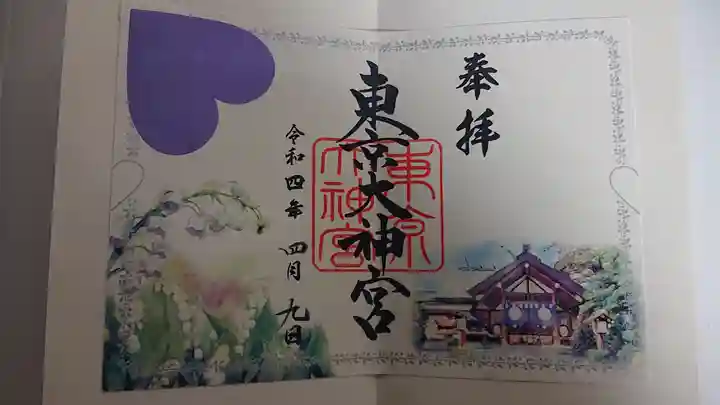 奉拝
東京大神宮
東京大神宮
令和四年 四月 九日